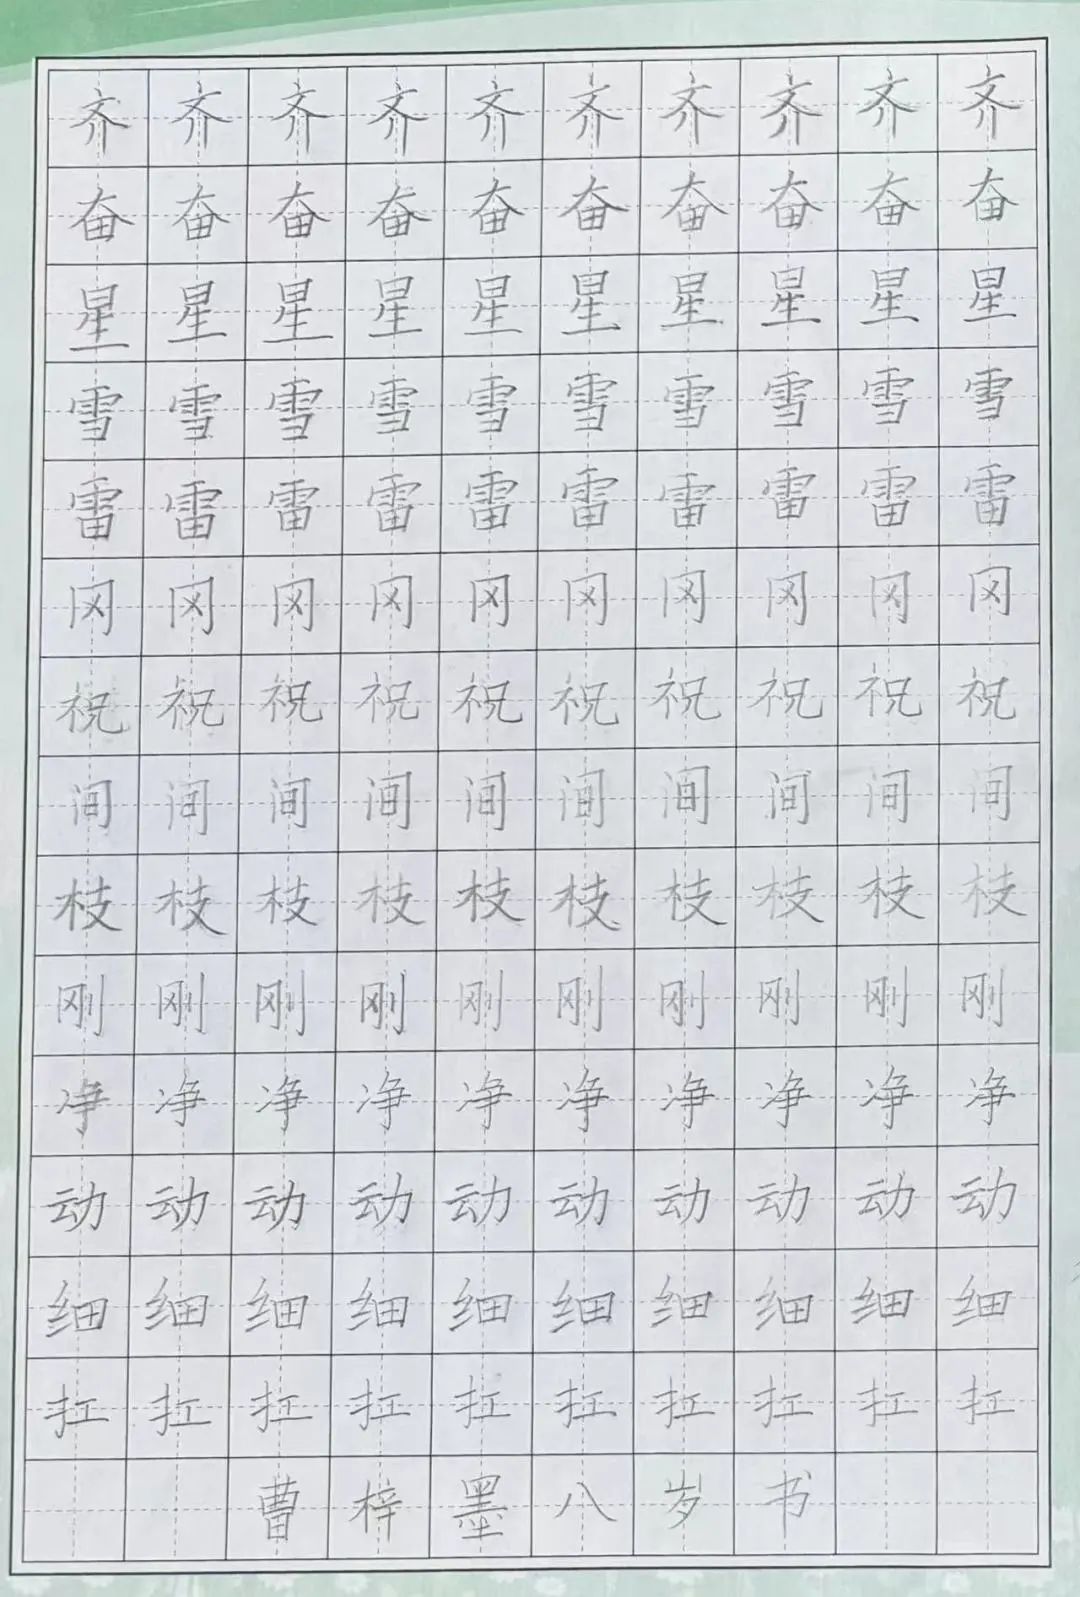 齐齐齐齐齐齐齐齐齐齐
奋奋奋奋奋奋奋奋奋奋
星星星星星星星星星星
雪雪雪雪雪雪雪雪雪雪
雷雷雷雷雷雷雷雷雷雷
冈冈冈冈冈冈冈冈冈冈
祝祝祝祝祝祝祝祝祝祝
间间间间间间间间间间
枝枝枝枝枝枝枝枝枝枝
刚刚刚刚刚刚刚刚刚刚
净净净净净净净净净净
动动动动动动动动动动
细细细细细细细细细细
扛扛扛扛扛扛扛扛扛扛
曹梓墨八岁书